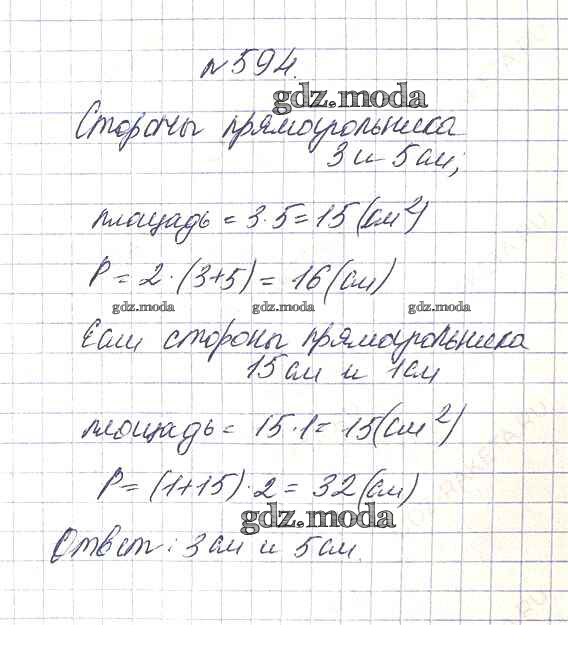 №594.
gdz.moda
Стороны прямоугольника
3 и 5 см;
площадь = 3·5=15 (см²)
P = 2·(3+5) = 16 (см)
gdz.moda gdz.moda gdz.moda
Если стороны прямоугольника
15 см и 1 см
площадь = 15·1= 15(см²)
P = (1+15)·2 = 32 (см)
gdz.moda
Ответ: 3 см и 5 см.